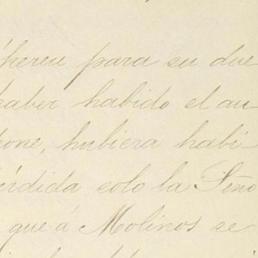 hereu para su due
haber habido el au
pone, hubiera habi
érdida solo la Seño
que á Molinos se